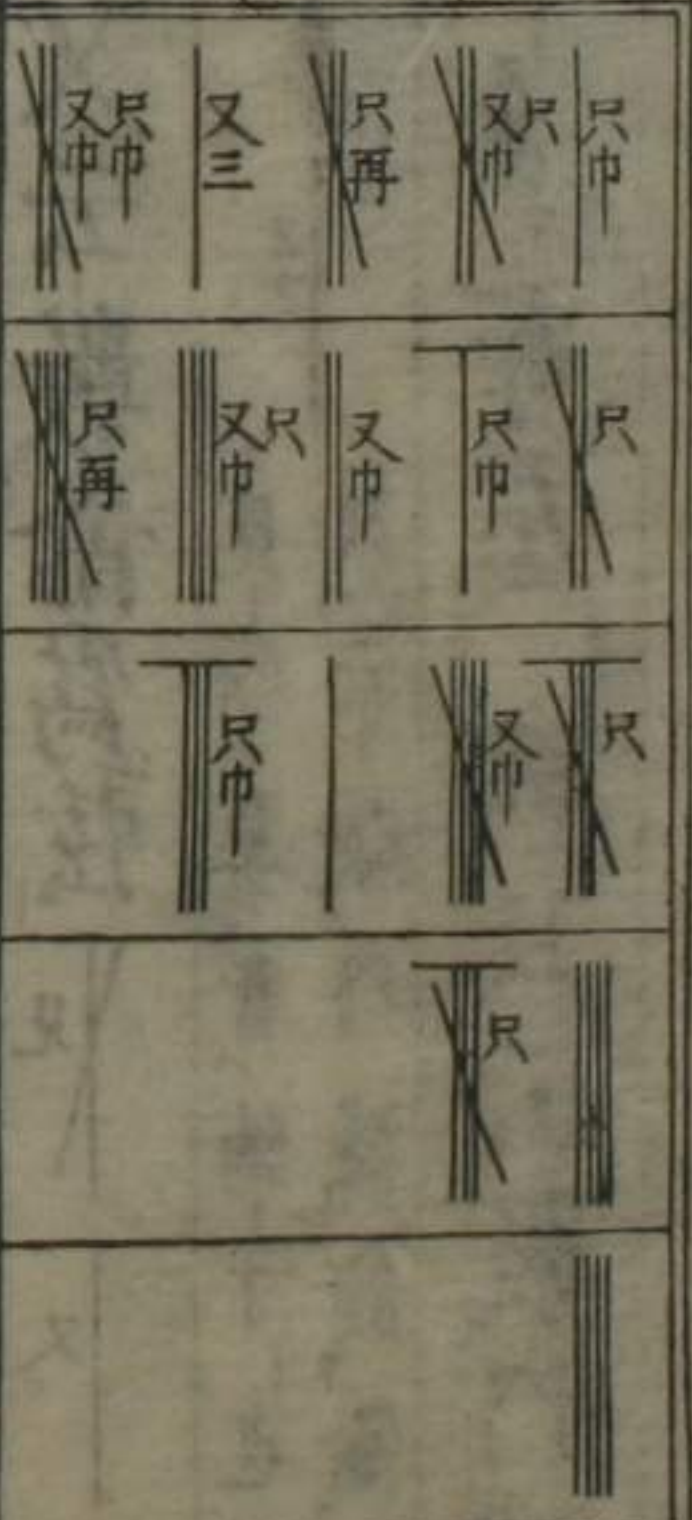 只巾
只又巾
只再
又三
只巾又巾
只
只巾
又巾
只又巾
只再
只
又巾
只巾
只